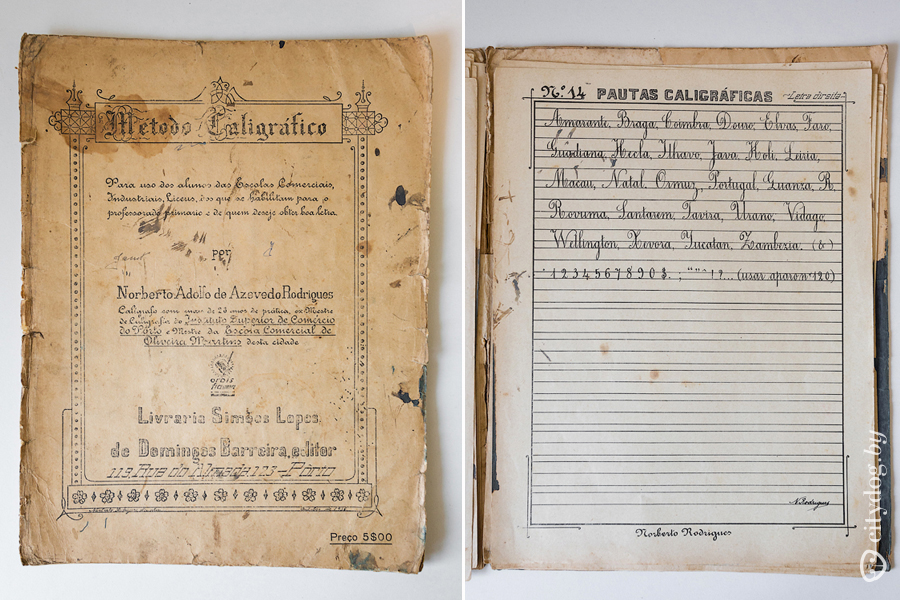 Método Caligráfico
Para uso dos alunos das Escolas Comerciais,
Industriais, Liceus, dos que se habilitam para o
professorado primario e de quem deseje obter boa letra.
POR
Norberto Adolfo de Azevedo Rodrigues
Calígrafo com mais de 20 anos de prática, ex-Mestre
de Caligrafia do Instituto Superior de Comércio
do Porto e Mestre da Escola Comercial de
Oliveira Martins desta cidade
Livraria Simões Lopes
de Domingos Barreira, editor
119, Rua do Almada, 123 - Pôrto
Preço 5$00
Nº 14 PAUTAS CALIGRÁFICAS Letra direita
Amarante, Braga, Coimbra, Douro, Elvas, Faro,
Guadiana, Hecla, Ilhavo, Java, Koli, Leiria,
Macau, Natal, Ormuz, Portugal, Quanza, R,
Rovuma, Santarem, Tavira, Urano, Vidago,
Wellington, Xevora, Yucatan, Zambezia. (&)
1234567890$.,; " " ^ ! ?... (usar aparo nº 120)
N. Rodrigues
Norberto Rodrigues
citydog.by